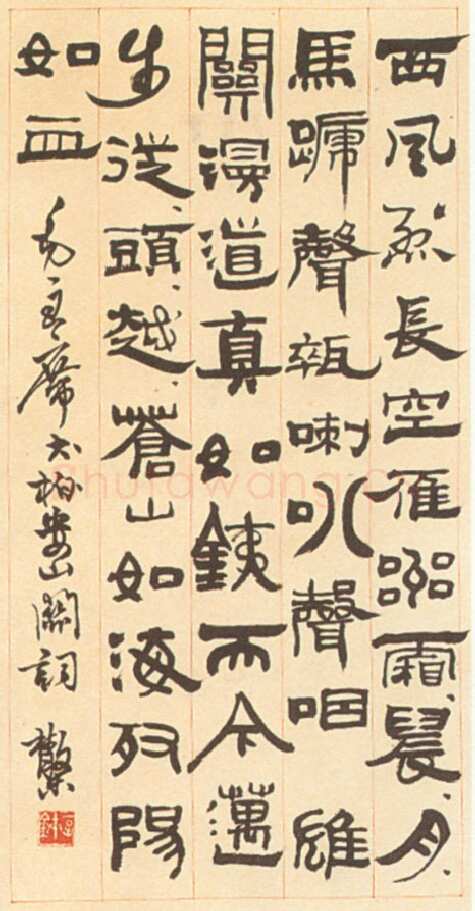 西風烈長空雁叫霜、晨、月、
馬蹄聲碎喇叭聲咽雄
關漫道真如銕而今邁
步從、頭、越、蒼山如海殘陽
如血
毛主席婁山關詞
Shufawang.cn